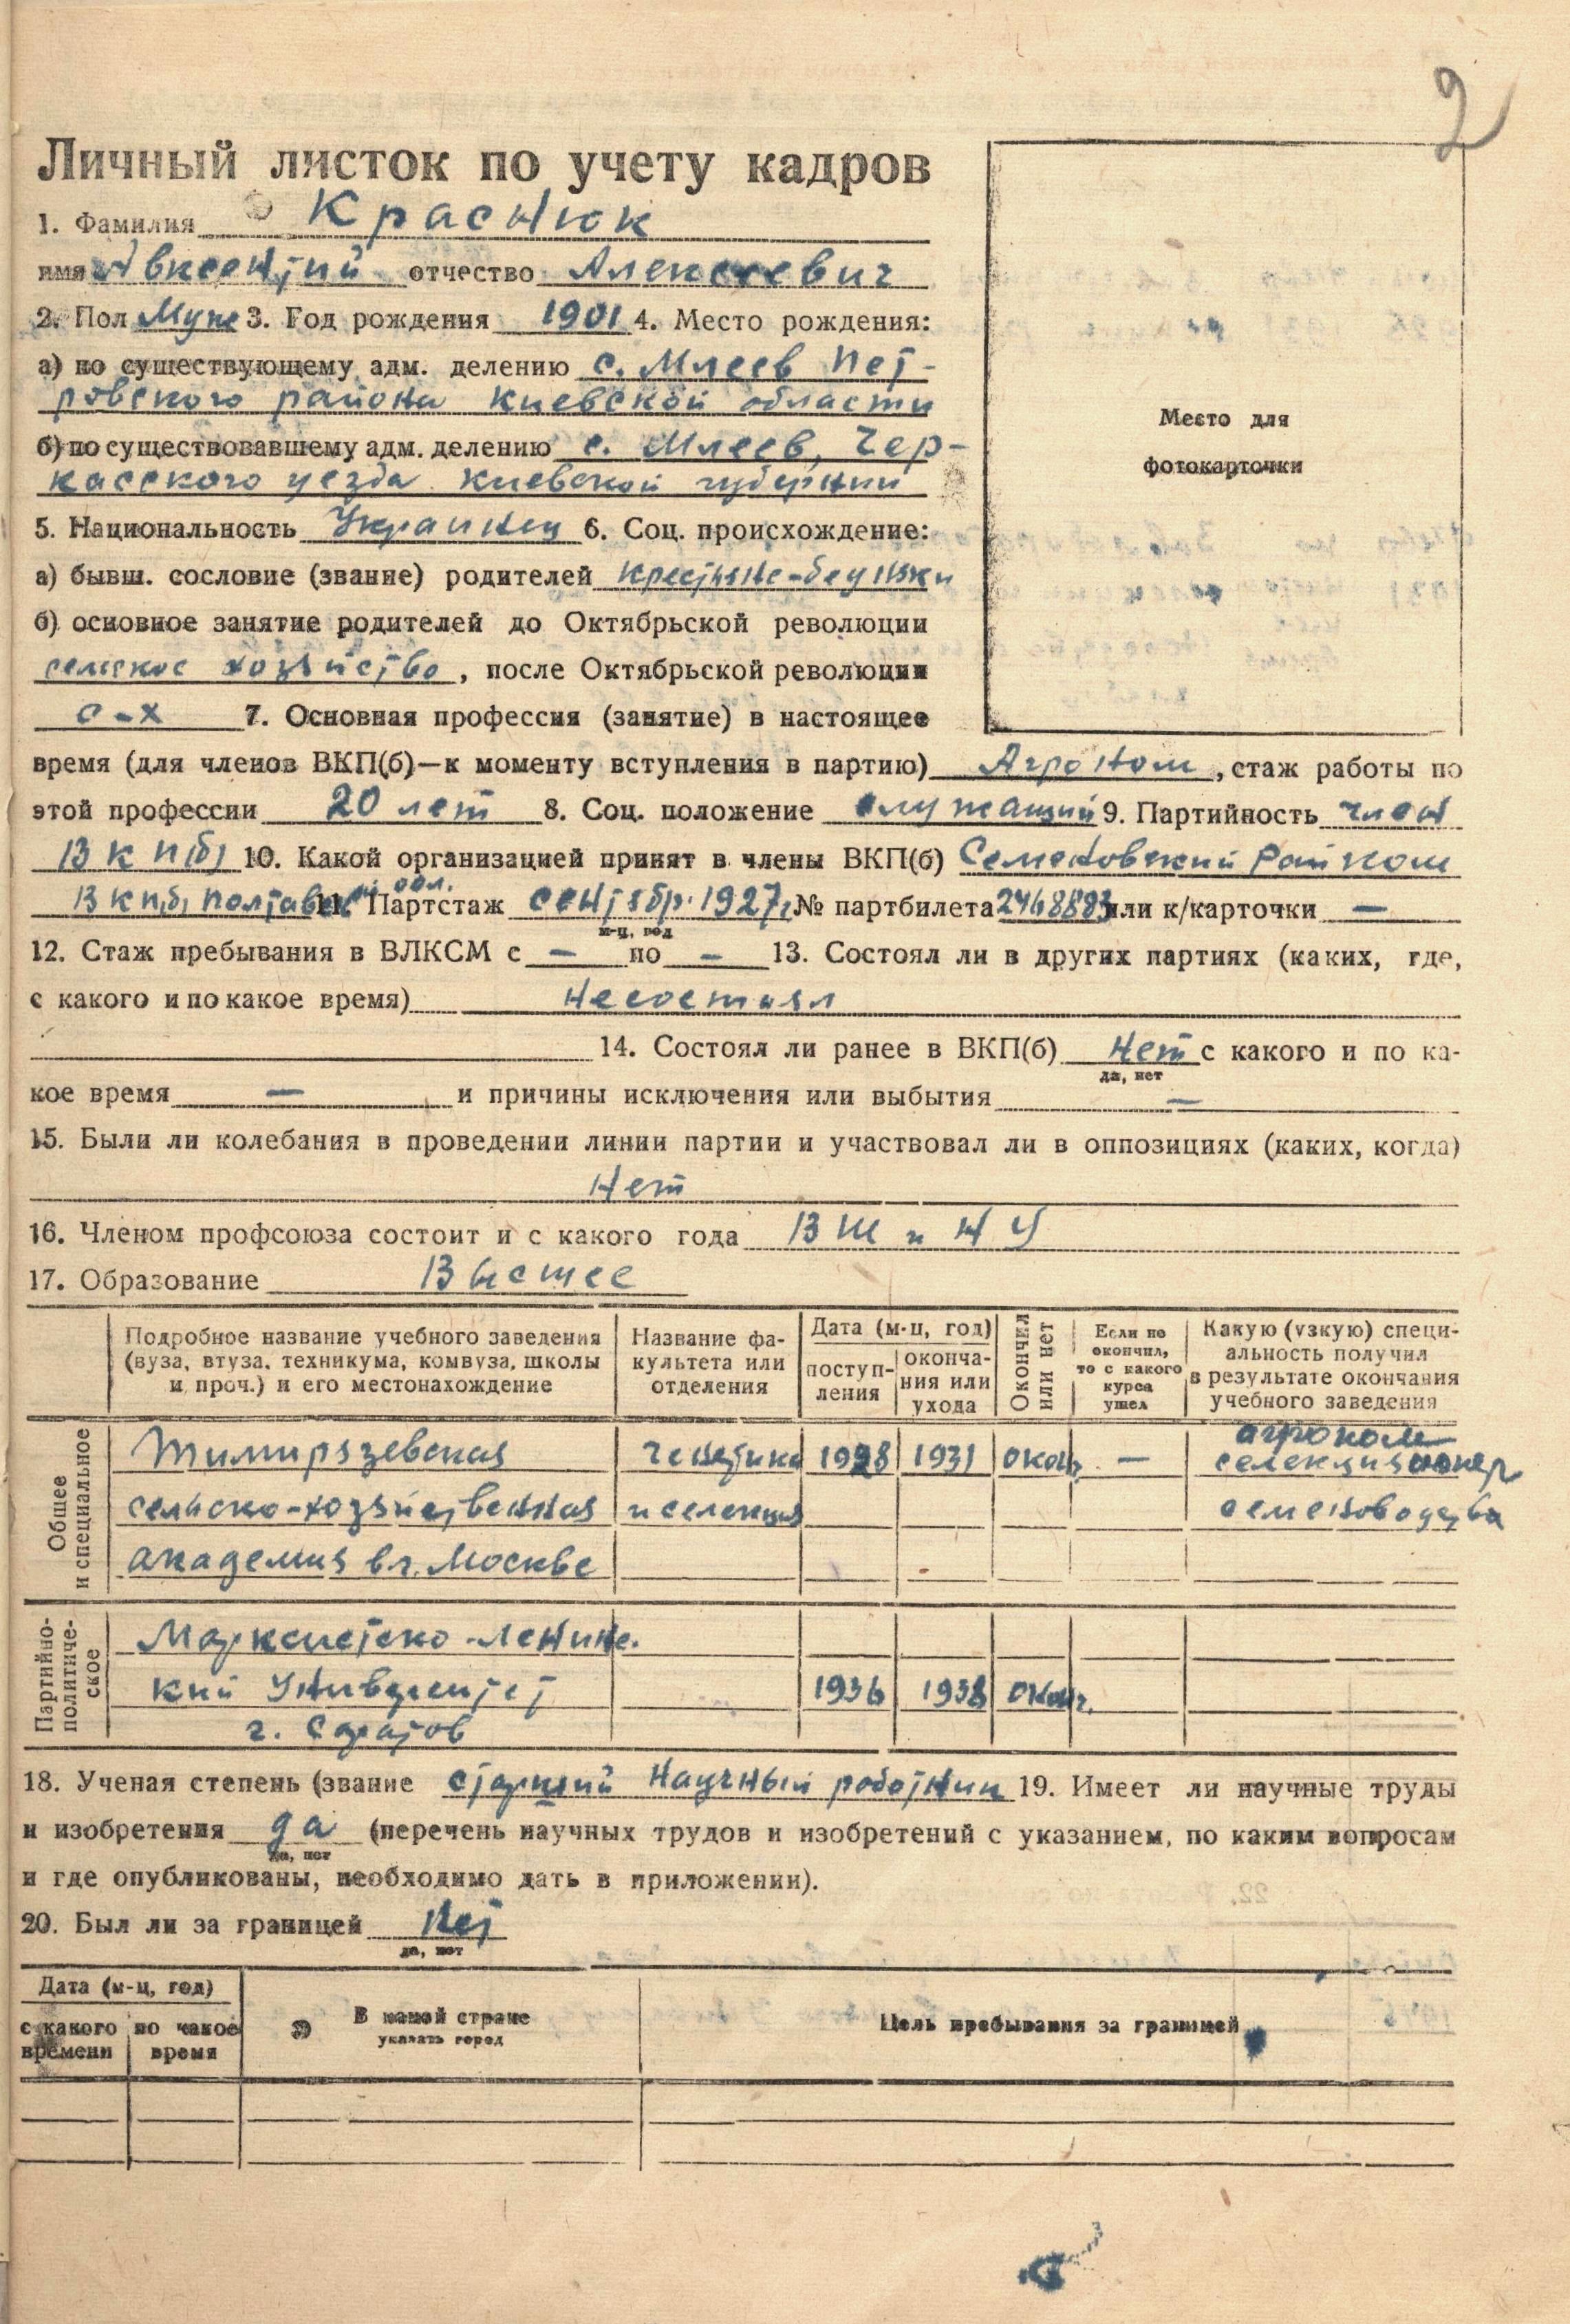 2
Личный листок по учету кадров
1. Фамилия Краснюк
имя Авксентий отчество Алексеевич
2. Пол Муж 3. Год рождения 1901 4. Место рождения:
а) по существующему адм. делению с. Млеев Пет-
ровского района Киевской области
б) по существовавшему адм. делению с. Млеев, Чер-
касского уезда Киевской губернии
5. Национальность Украинец 6. Соц. происхождение:
а) бывш. сословие (звание) родителей крестьяне-бедняки
б) основное занятие родителей до Октябрьской революции
сельское хозяйство, после Октябрьской революции
с-х 7. Основная профессия (занятие) в настоящее
Место для
фотокарточки
время (для членов ВКП(б)—к моменту вступления в партию) Агроном, стаж работы по
этой профессии 20 лет 8. Соц. положение служащий 9. Партийность член
ВКП(б) 10. Какой организацией принят в члены ВКП(б) Семеновский Райком
ВКП(б) Полтавской обл. 11. Партстаж сентябр. 1927г. № партбилета 2468883 или к/карточки —
м-ц, год
12. Стаж пребывания в ВЛКСМ с — по — 13. Состоял ли в других партиях (каких, где,
с какого и по какое время) Несостоял
14. Состоял ли ранее в ВКП(б) Нет с какого и по ка-
да, нет
кое время — и причины исключения или выбытия —
15. Были ли колебания в проведении линии партии и участвовал ли в оппозициях (каких, когда)
Нет
16. Членом профсоюза состоит и с какого года ВШ и НУ
17. Образование Высшее
Подробное название учебного заведения (вуза, втуза, техникума, комвуза, школы и проч.) и его местонахождение
Название факультета или отделения
Дата (м-ц, год)
поступ-
ления
оконча-
ния или
ухода
Окончил
или нет
Если не
окончил,
то с какого
курса
ушел
Какую (узкую) специ-
альность получил
в результате окончания
учебного заведения
Общее
и специальное
агроном
Тимирязевская генетика 1928 1931 оконч. — селекционер
сельско-хозяйственная и селекция семеноводства
академия в г. Москве
Партийно-
политиче-
ское
Марксистско-Ленинс.
кий Университет 1936 1938 оконч.
г. Саратов
18. Ученая степень (звание старший Научный работник 19. Имеет ли научные труды
и изобретения да (перечень научных трудов и изобретений с указанием, по каким вопросам
да, нет
и где опубликованы, необходимо дать в приложении).
20. Был ли за границей Нет
да, нет
Дата (м-ц, год)
с какого
времени
по какое
время
В какой стране
указать город
Цель пребывания за границей